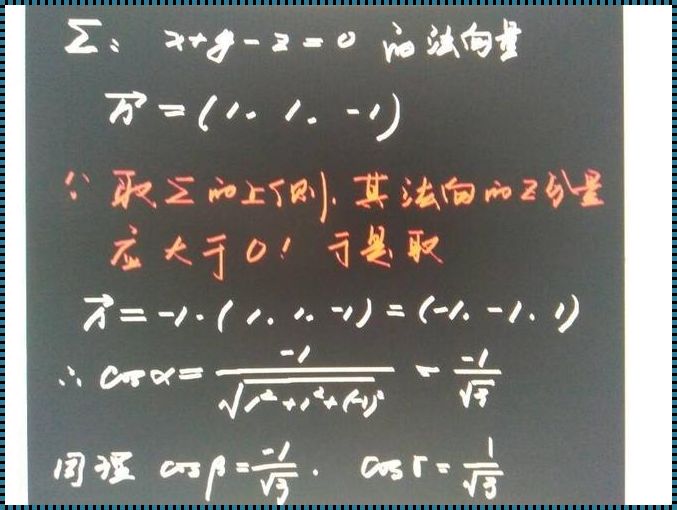 Σ: x+y-z=0 的法向量
n⃗=(1, 1, -1)
∵ 取Σ的上侧, 其法向的Z分量
应大于0! 于是取
n⃗=-1·(1, 1, -1)=(-1, -1, 1)
∴ cosα= -1/√(1²+1²+(-1)²) = -1/√3
同理 cosβ= -1/√3, cosγ= 1/√3